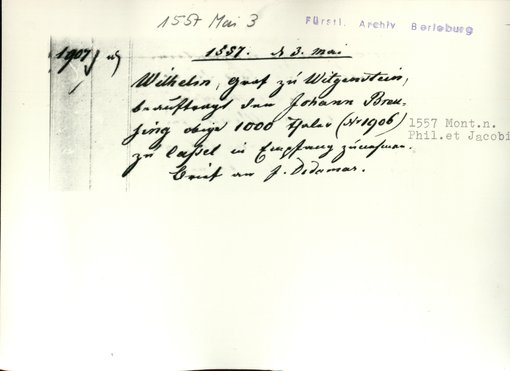 1557 Mai 3
Fürstl. Archiv Berleburg
1907
1557. d 3. Mai
Wilhelm, Graf zu Witgenstein,
beauftragt den Johann
obige 1000 Thaler (Nr 1906)
1557 Mont.n.
Phil.et Jacobi
zu Cassel in Empfang zunehmen.
Brief an J.